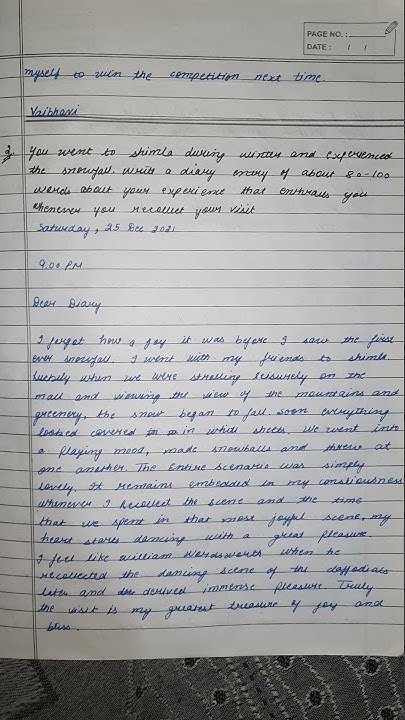 PAGE NO. :
DATE : / /
myself to win the competition next time.
Vaibhavi
2. You went to shimla during winter and experienced
the snowfall. write a diary entry of about 80-100
words about your experience that enthralls you
whenever you recollect your visit
Saturday, 25 Dec 2021
9.00 PM
Dear Diary
I forget how a joy it was before I saw the first
ever snowfall. I went with my friends to shimla.
Luckily when we were strolling leisurely on the
mall and viewing the view of the mountains and
greenery, the snow began to fall. soon everything
looked covered in white sheets. We went into
a playing mood, made snowballs and threw at
one another. The Entire scenario was simply
lovely. It remains embedded in my consiousness
whenever I recollect the scene and the time
that we spent in that most joyful scene, my
heart stares dancing with a great pleasure.
I feel like william wordsworth when he
recollected the dancing scene of the daffodials
later and derived immense pleasure. Truly
the visit is my greatest treasure of joy and
bliss.